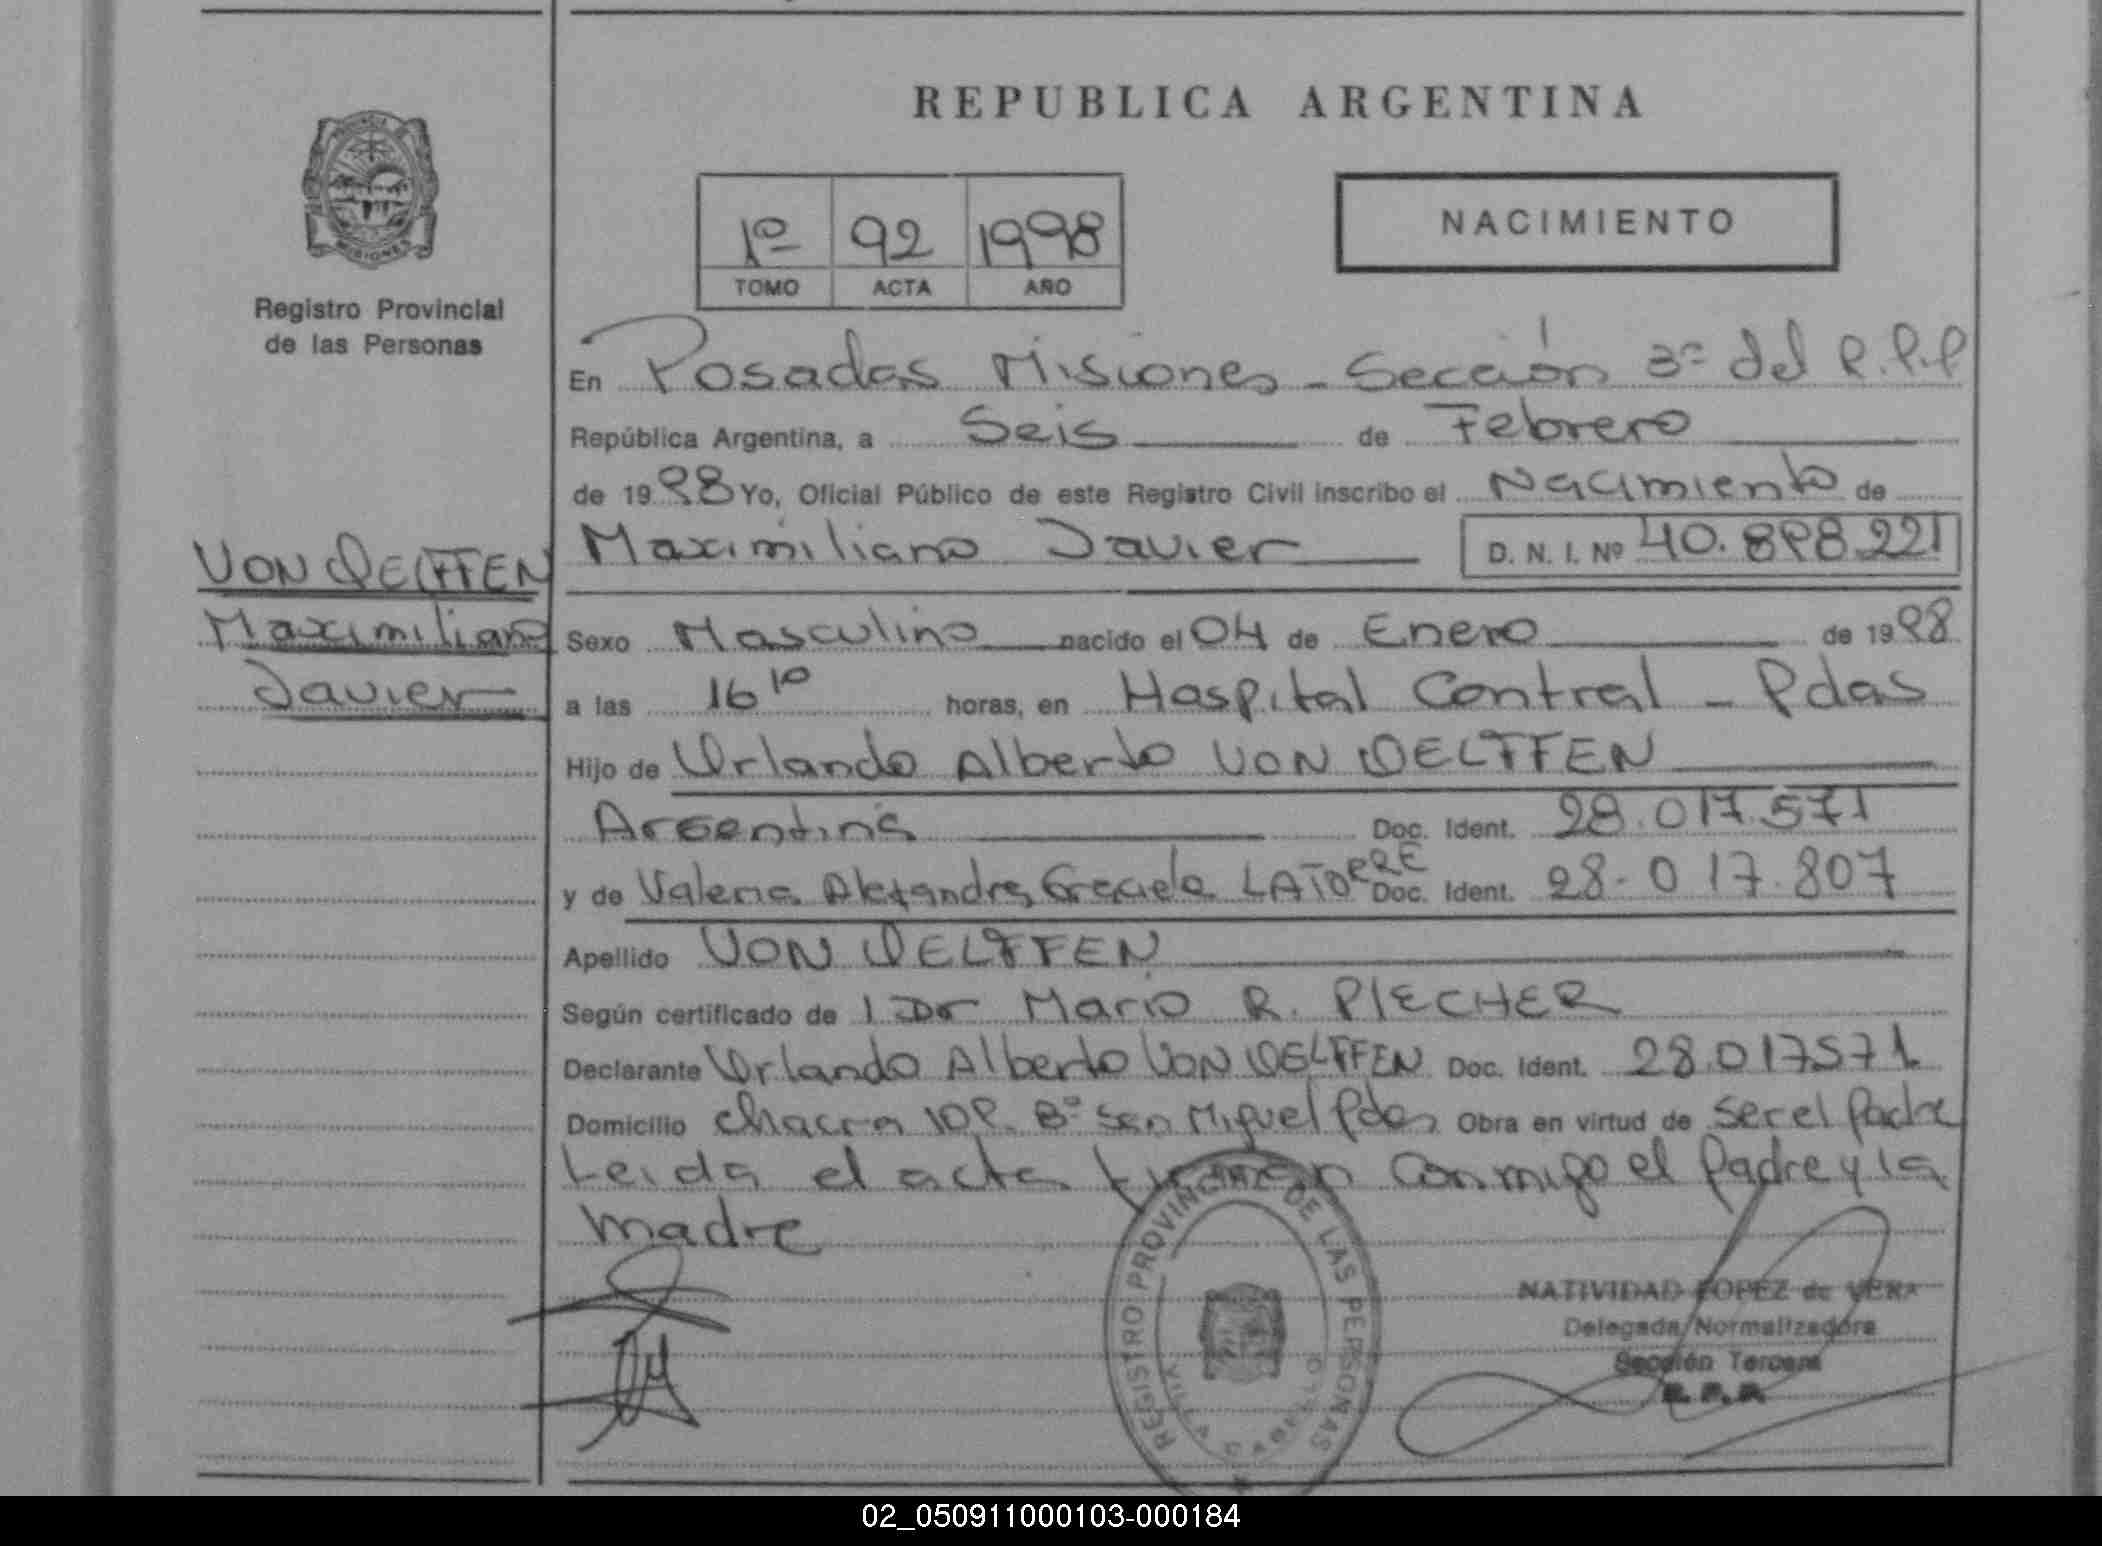 REPUBLICA ARGENTINA
PROVINCIA DE
MISIONES
Registro Provincial
de las Personas
1º 92 1998
TOMO ACTA AÑO
NACIMIENTO
En Posadas Misiones - Sección 3ª del R.P.P
República Argentina, a Seis de Febrero
de 1998 Yo, Oficial Público de este Registro Civil inscribo el Nacimiento de
Maximiliano Javier D. N. I. Nº 40.898.221
VON OELFFEN
Maximiliano
Javier
Sexo Masculino nacido el 04 de Enero de 1998
a las 16 10 horas, en Hospital Central - Pdas
Hijo de Orlando Alberto VON OELFFEN
Argentina Doc. Ident. 28.017.571
y de Valeria Alejandra Graciela LATORRE Doc. Ident. 28.017.807
Apellido VON OELFFEN
Según certificado de Dr Mario R. PIECHER
Declarante Orlando Alberto VON OELFFEN Doc. Ident. 28.017571
Domicilio Chacra 109. Bº San Miguel Pdas Obra en virtud de ser el Padre
Leida el acta firman conmigo el Padre y la
madre
REGISTRO PROVINCIAL DE LAS PERSONAS
VILLA CABELLO
NATIVIDAD LOPEZ de VERA
Delegada Normalizadora
Sección Tercera
R. P. P.
02_050911000103-000184